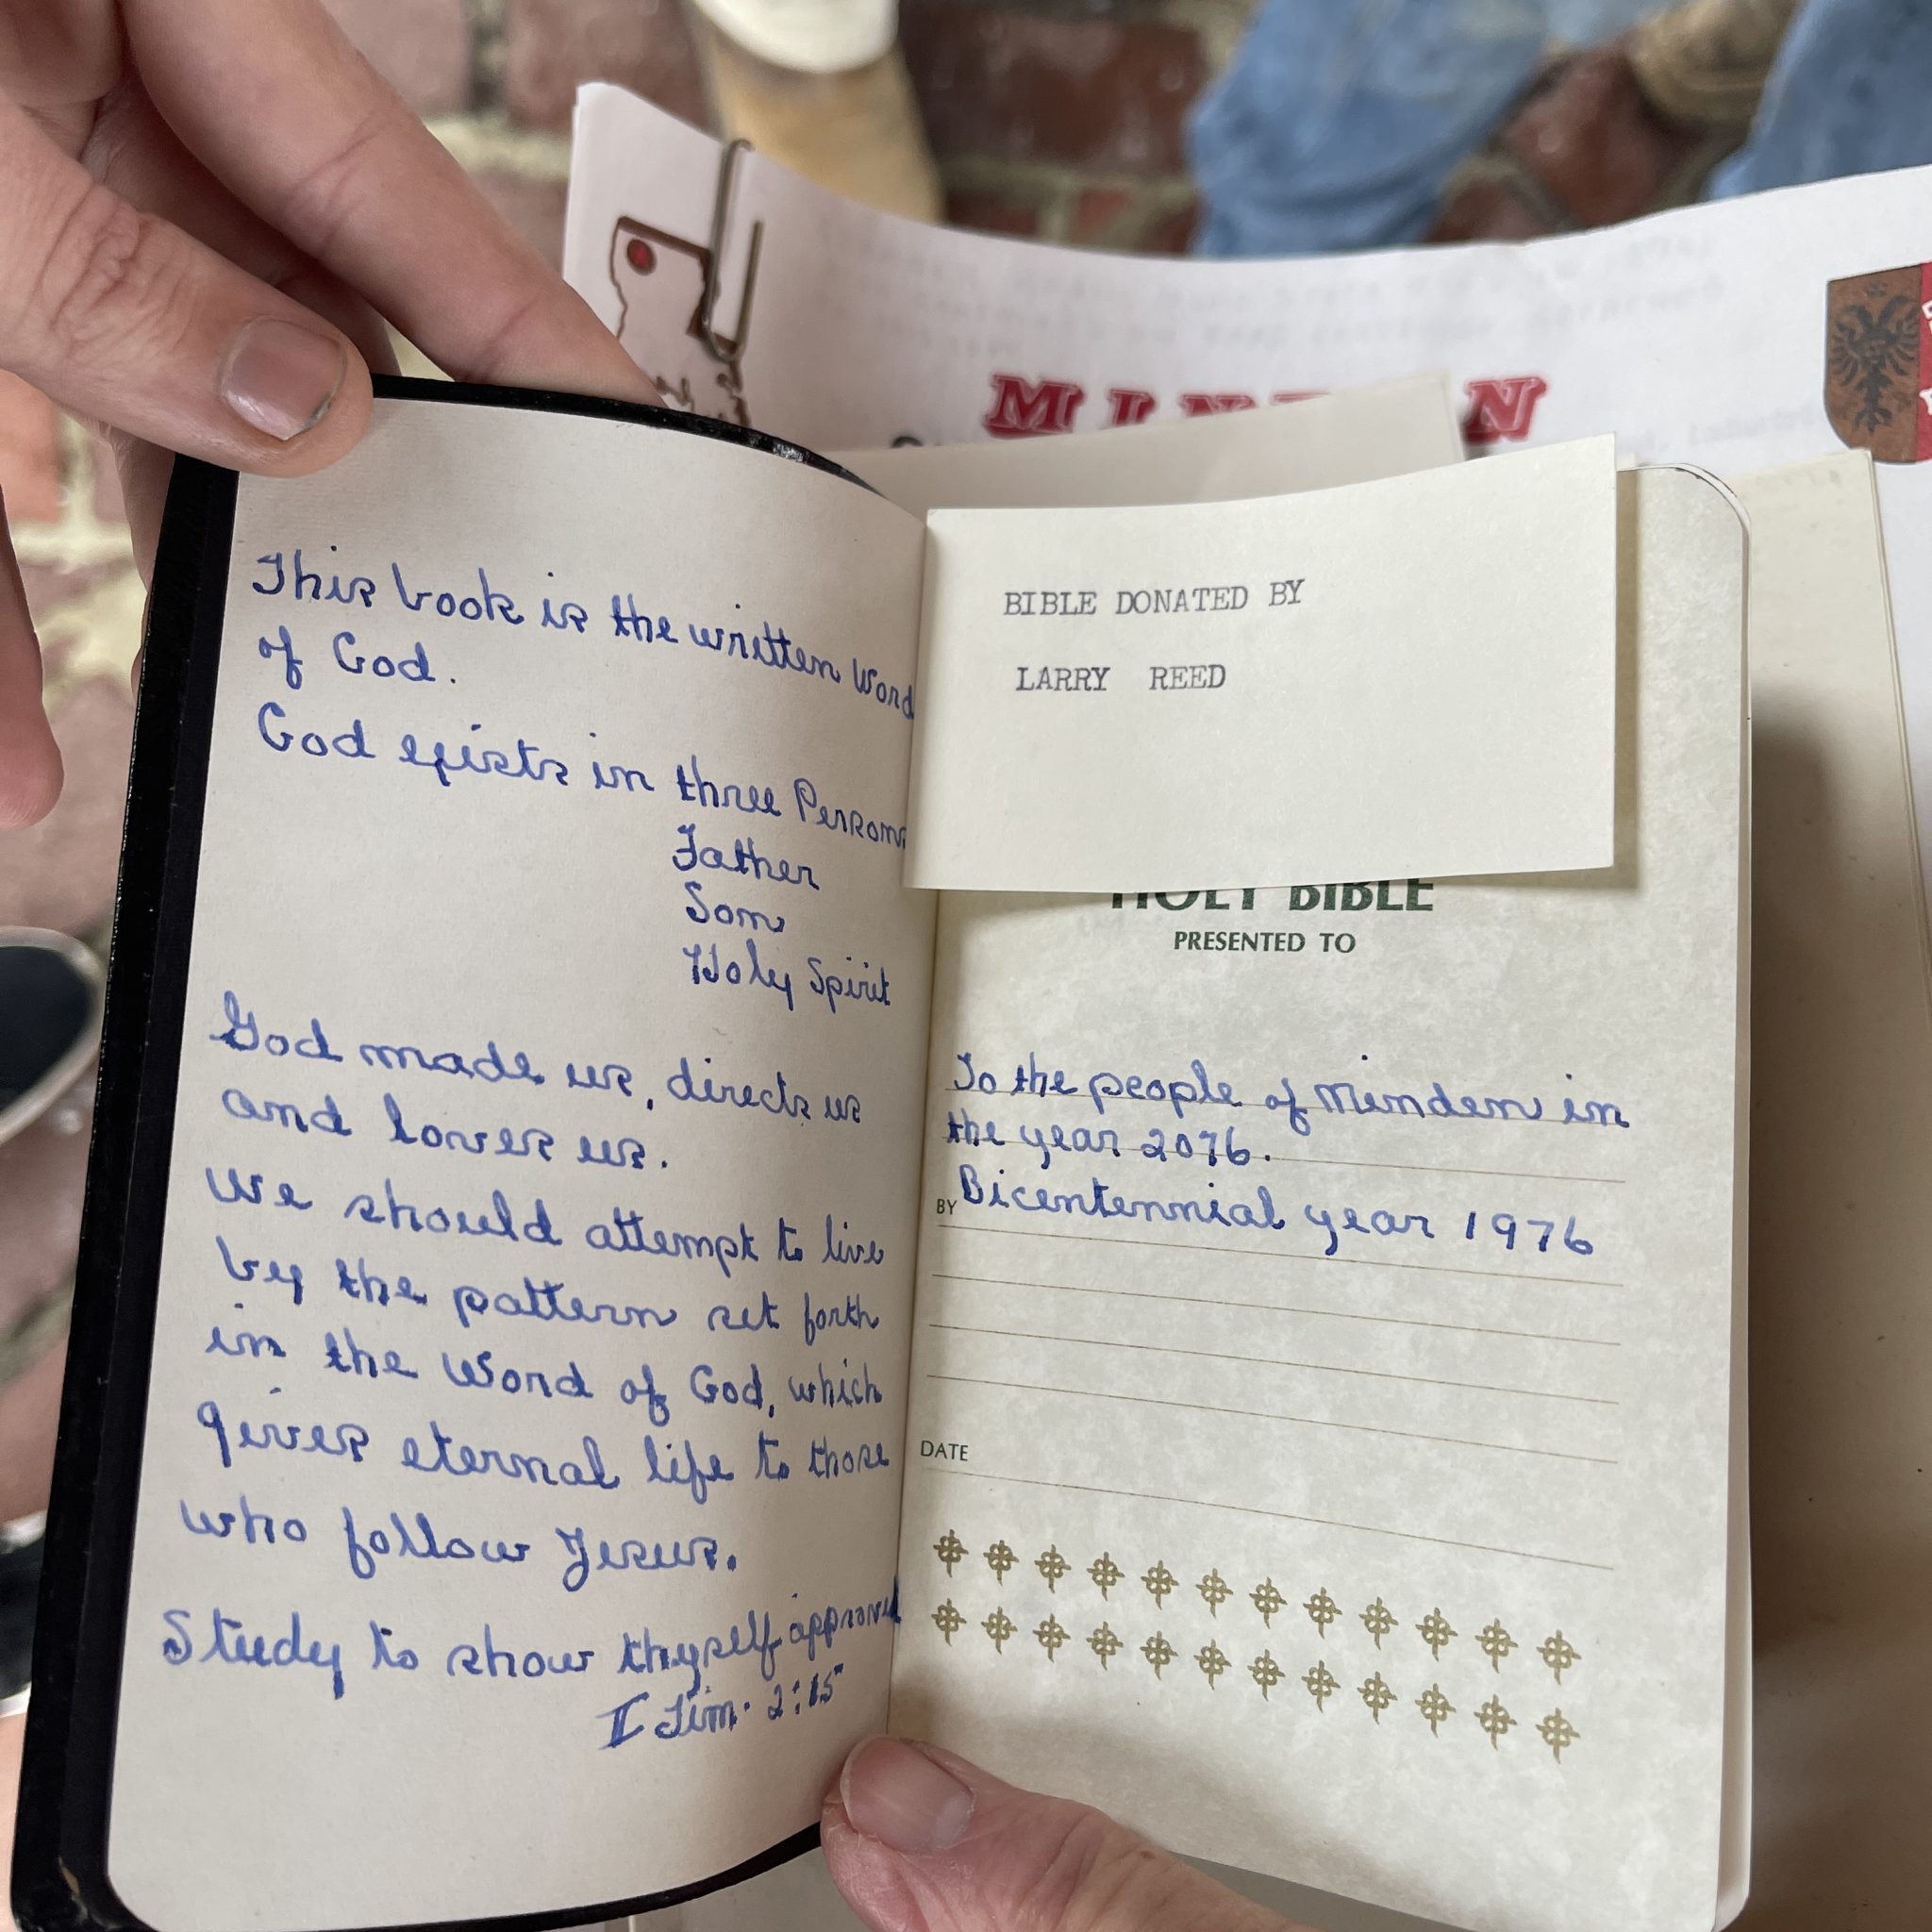 This book is the written Word
of God.
God exists in three Persons
Father
Son
Holy Spirit
God made us, directs us
and loves us.
We should attempt to live
by the pattern set forth
in the Word of God, which
gives eternal life to those
who follow Jesus.
Study to show thyself approved
II Tim. 2:15
MINDEN
BIBLE DONATED BY
LARRY REED
HOLY BIBLE
PRESENTED TO
To the people of Minden in
the year 2076.
BY Bicentennial year 1976
DATE